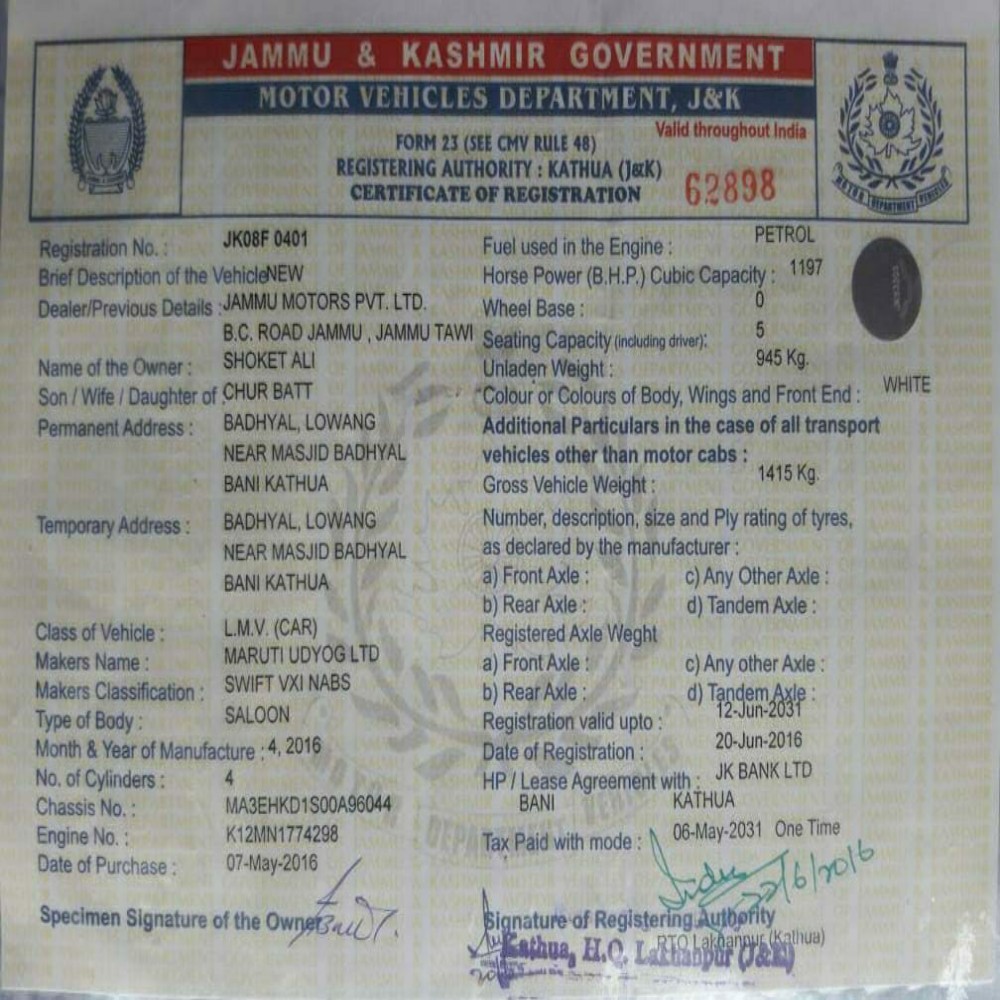 JAMMU & KASHMIR GOVERNMENT
MOTOR VEHICLES DEPARTMENT, J&K
Valid throughout India
FORM 23 (SEE CMV RULE 48)
REGISTERING AUTHORITY : KATHUA (J&K)
CERTIFICATE OF REGISTRATION
62898
MOTOR DEPARTMENT VEHICLES
Registration No. : JK08F 0401
Brief Description of the Vehicle NEW
Dealer/Previous Details : JAMMU MOTORS PVT. LTD.
B.C. ROAD JAMMU , JAMMU TAWI
Name of the Owner : SHOKET ALI
Son / Wife / Daughter of : CHUR BATT
Permanent Address : BADHYAL, LOWANG
NEAR MASJID BADHYAL
BANI KATHUA
Temporary Address : BADHYAL, LOWANG
NEAR MASJID BADHYAL
BANI KATHUA
Class of Vehicle : L.M.V. (CAR)
Makers Name : MARUTI UDYOG LTD
Makers Classification : SWIFT VXI NABS
Type of Body : SALOON
Month & Year of Manufacture : 4, 2016
No. of Cylinders : 4
Chassis No. : MA3EHKD1S00A96044
Engine No. : K12MN1774298
Date of Purchase : 07-May-2016
Specimen Signature of the Owner
Fuel used in the Engine : PETROL
Horse Power (B.H.P.) Cubic Capacity : 1197
Wheel Base : 0
Seating Capacity (including driver): 5
Unladen Weight : 945 Kg.
Colour or Colours of Body, Wings and Front End : WHITE
Additional Particulars in the case of all transport
vehicles other than motor cabs :
Gross Vehicle Weight : 1415 Kg.
Number, description, size and Ply rating of tyres,
as declared by the manufacturer :
a) Front Axle : c) Any Other Axle :
b) Rear Axle : d) Tandem Axle :
Registered Axle Weght
a) Front Axle : c) Any other Axle :
b) Rear Axle : d) Tandem Axle :
Registration valid upto : 12-Jun-2031
Date of Registration : 20-Jun-2016
HP / Lease Agreement with : JK BANK LTD
BANI KATHUA
Tax Paid with mode : 06-May-2031 One Time
22/6/2016
Signature of Registering Authority
RTO Lakhanpur (Kathua)
Kathua, H.Q. Lakhanpur (J&K)